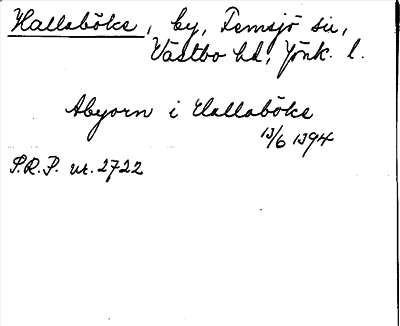 Hallaböke, by, Femsjö sn,
Västbo hd, Jönk. l.
Abyorn i Hallaböke
13/6 1394
S.R.P. nr. 2722